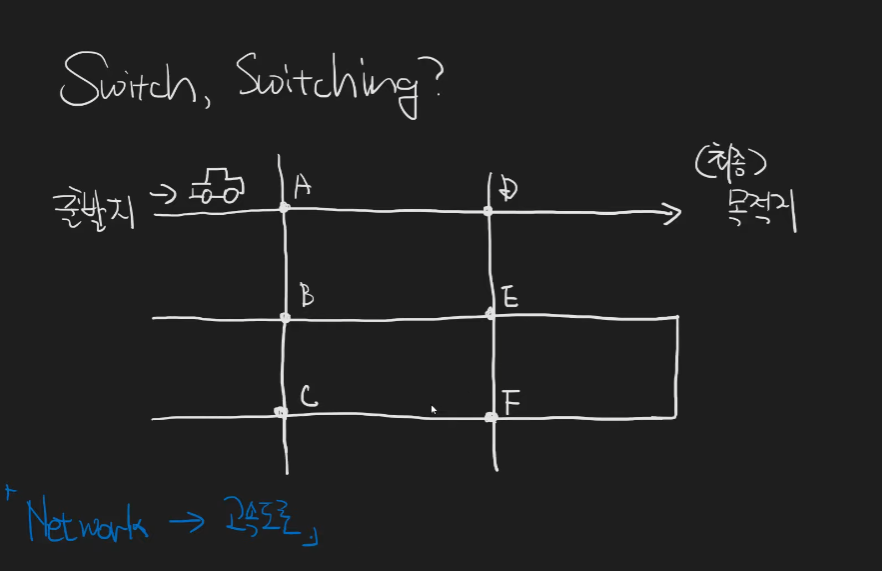 Switch, Switching?
(최종)
출발지 → A D 목적지
B E
C F
「Network → 고속도로」